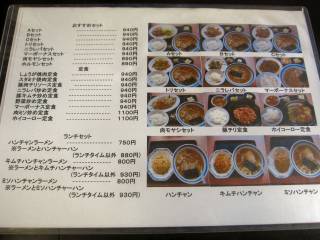 おすすめセット
Aセット 940円
Bセット 940円
Cセット 940円
トリセット 940円
ニラレバセット 940円
マーボーナスセット 940円
肉モヤシセット 940円
ホルモンセット 940円
定食
しょうが焼肉定食 940円
スタミナ焼肉定食 940円
豚キムチ定食 940円
ニラレバ炒め定食 940円
野菜炒め定食 940円
マーボーナス定食 940円
肉ピリ炒め定食 1100円
ホイコーロー定食 1100円
ランチセット
ハンチャンラーメン 750円
※ラーメンとハンチャーハン
(ランチタイム以外 880円)
キムチハンチャンラーメン 800円
※ラーメンとキムチハンチャーハン
(ランチタイム以外 930円)
ミソハンチャンラーメン 800円
※ラーメンとミソハンチャーハン
(ランチタイム以外 930円)
Aセット
Bセット
Cセット
トリセット
ニラレバセット
マーボーナスセット
肉モヤシセット
豚チリ定食
ホイコーロー定食
ハンチャン
キムチハンチャン
ミソハンチャン